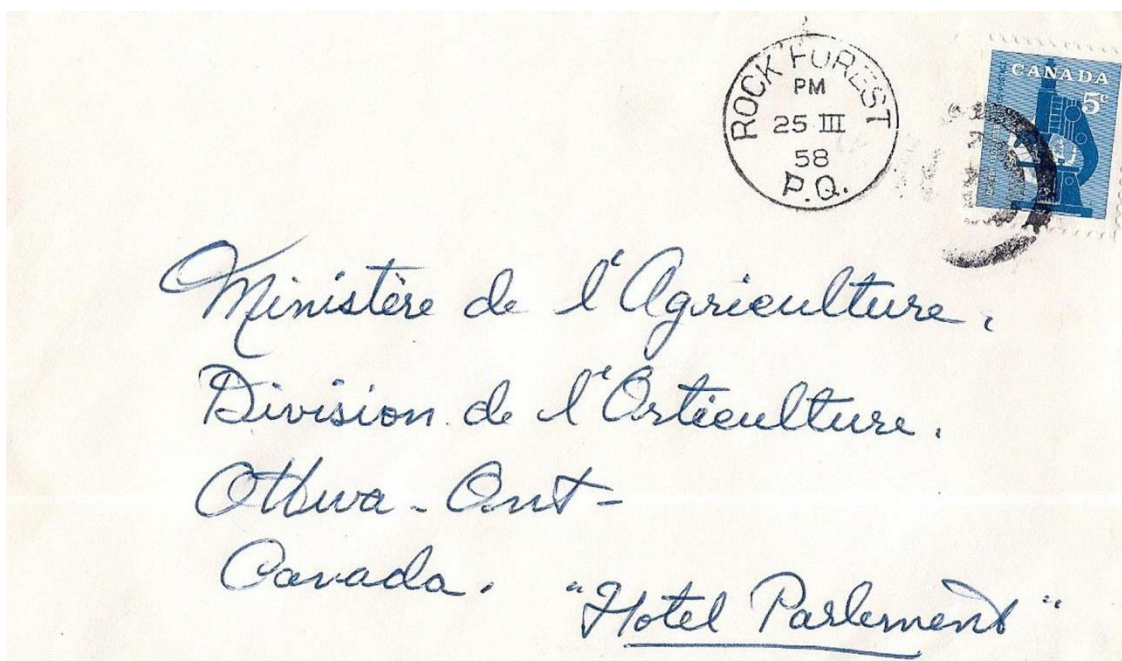 ROCK FOREST
PM
25 III
58
P.Q.
CANADA
5¢
Ministère de l'Agriculture.
Division de l'Orticulture.
Ottwa - Ont -
Canada.
"Hotel Parlement"